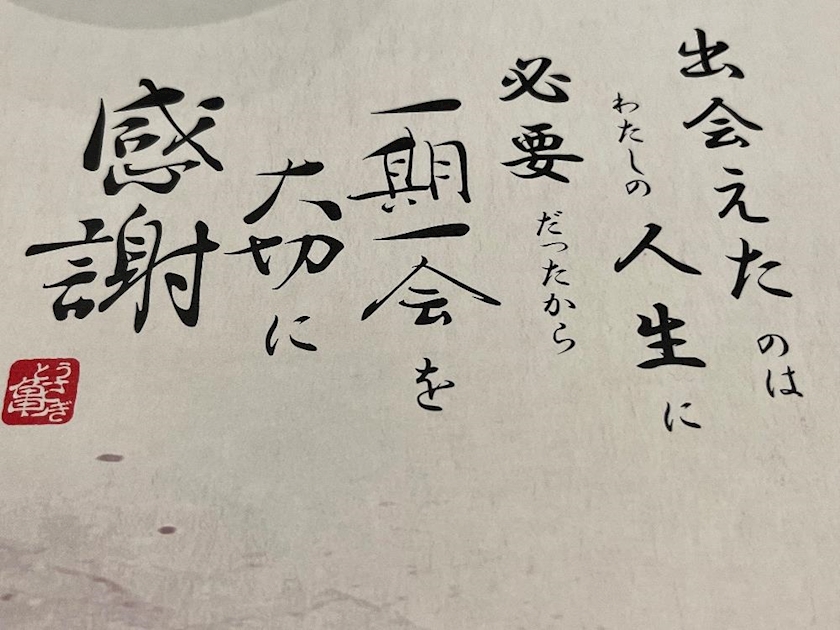 出会えたのは
わたしの人生に
必要だったから
一期一会を
大切に
感謝
うさぎ
と